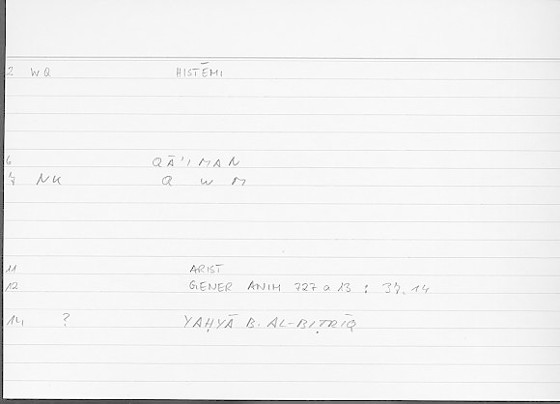 2 WQ HISTĒMI
6 QĀ'IMAN
7 NK Q W M
11 ARIST
12 GENER ANIM 727 a 13 : 37, 14
14 ? YAḤYĀ B. AL-BIṬRĪQ